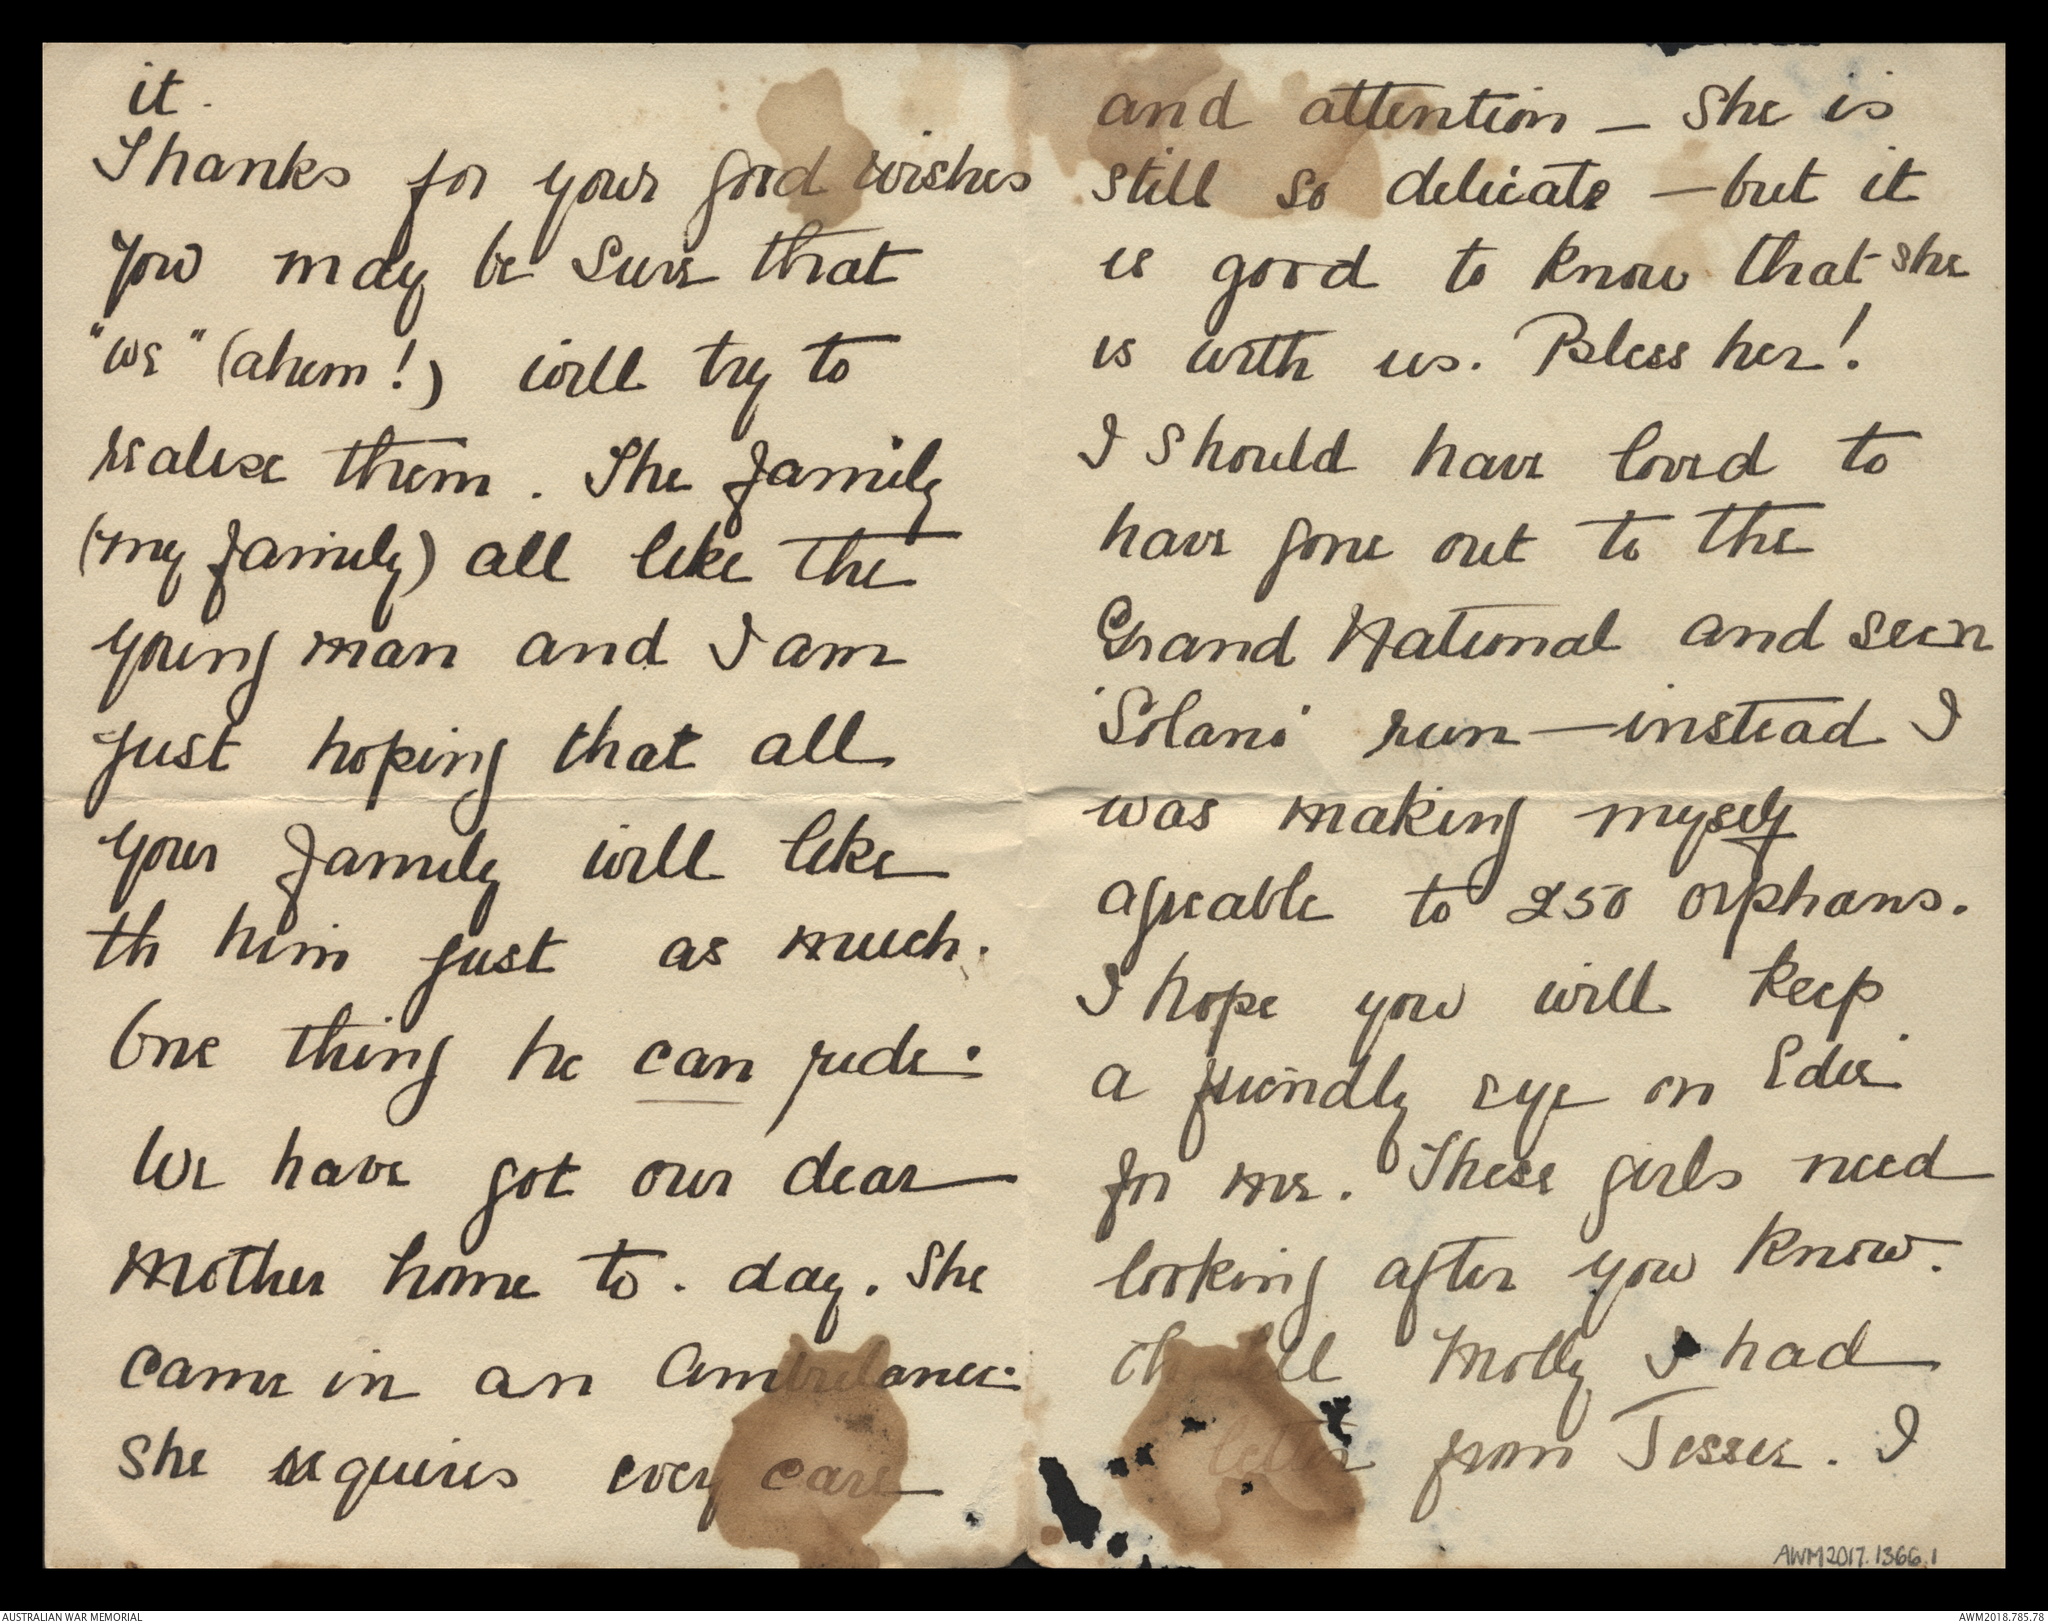 it.
Thanks for your good wishes
you may be sure that
"we" (ahem!) will try to
realise them. The family
(my family) all like the
young man and I am
just hoping that all
your family will like
th him just as much.
One thing he can ride:
We have got our dear
Mother home to. day. She
came in an Ambulance:
She requires every care
and attention — She is
still so delicate — but it
is good to know that she
is with us. Bless her!
I should have loved to
have gone out to the
Grand National and seen
'Solani' run — instead I
was making myself
agreable to 250 orphans.
I hope you will keep
a friendly eye on Edie
for me. These girls need
looking after you know.
tell Molly I had
letter from Jessie. I
AWM2017.1366.1
AUSTRALIAN WAR MEMORIAL
AWM2018.785.78